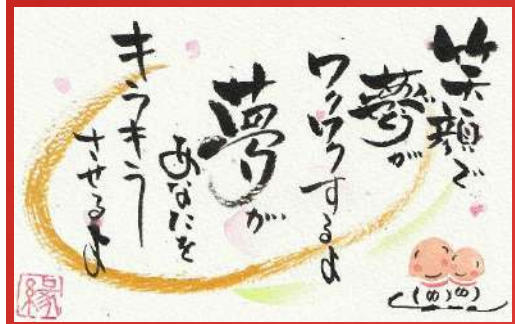 笑顔で
夢が
ワクワクするよ
夢が
あなたを
キラキラ
させるよ
縁